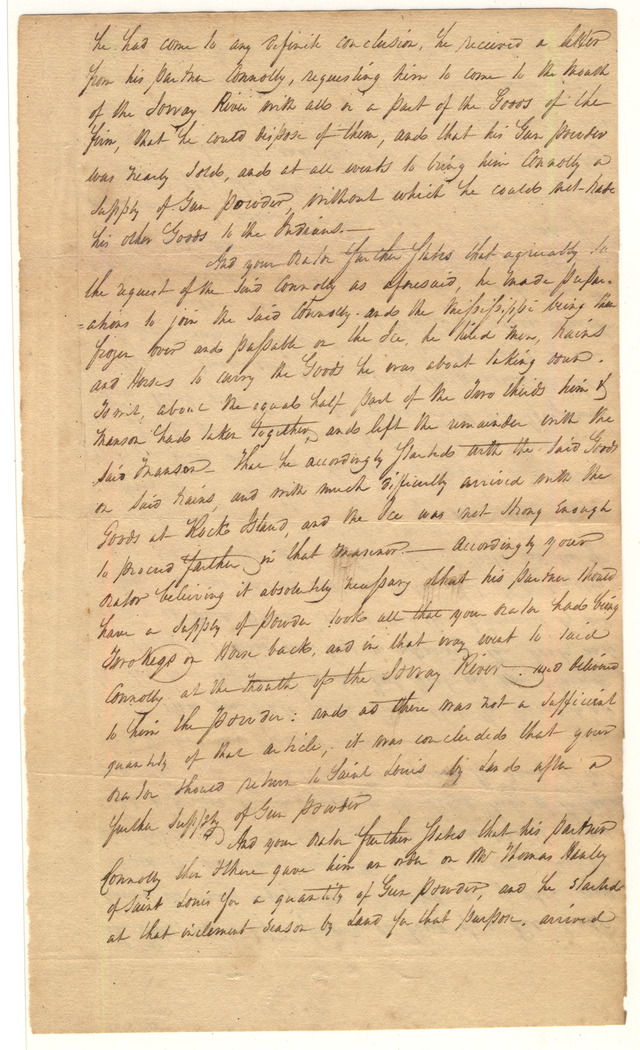 he had come to any definite conclusion, he received a letter
from his partner Connolly, requesting him to come to the mouth
of the Ioway River with all or a part of the Goods of the
firm, that he could dispose of them, and that his Gun powder
was nearly sold, and at all events to bring him Connolly a
supply of Gun Powder, without which he could not trade
his other Goods to the Indians.—
And your orator further states that agreeably to
the request of the said Connolly as aforesaid, he made prepar-
=ations to join the said Connolly. and the Mississippi being then
frozen over and passable on the Ice, he hired men, trains
and Horses to carry the Goods he was about taking down.
Towit, about the equal half part of the Two thirds him &
Manson had taken together, and left the remainder with the
said Manson – That he accordingly started with the said Goods
on said trains, and with much difficulty arrived with the
Goods at Rock Island, and the Ice was not strong enough
to proceed farther in that manner. — Accordingly your
orator believing it absolutely necessary that his partner should
have a supply of powder took all that your orator had being
Two Kegs on Horse back, and in that way went to said
Connolly at the mouth of the Ioway River. and delivered
to him the powder: and as there was not a sufficient
quantity of that article, it was concluded that your
orator should return to Saint Louis by Land after a
further supply of Gun powder
And your orator further states that his partner
Connolly then & there gave him an order on Mr Thomas Hanley
of Saint Louis for a quantity of Gun Powder, and he started
at that inclement season by Land for that purpose, arrived